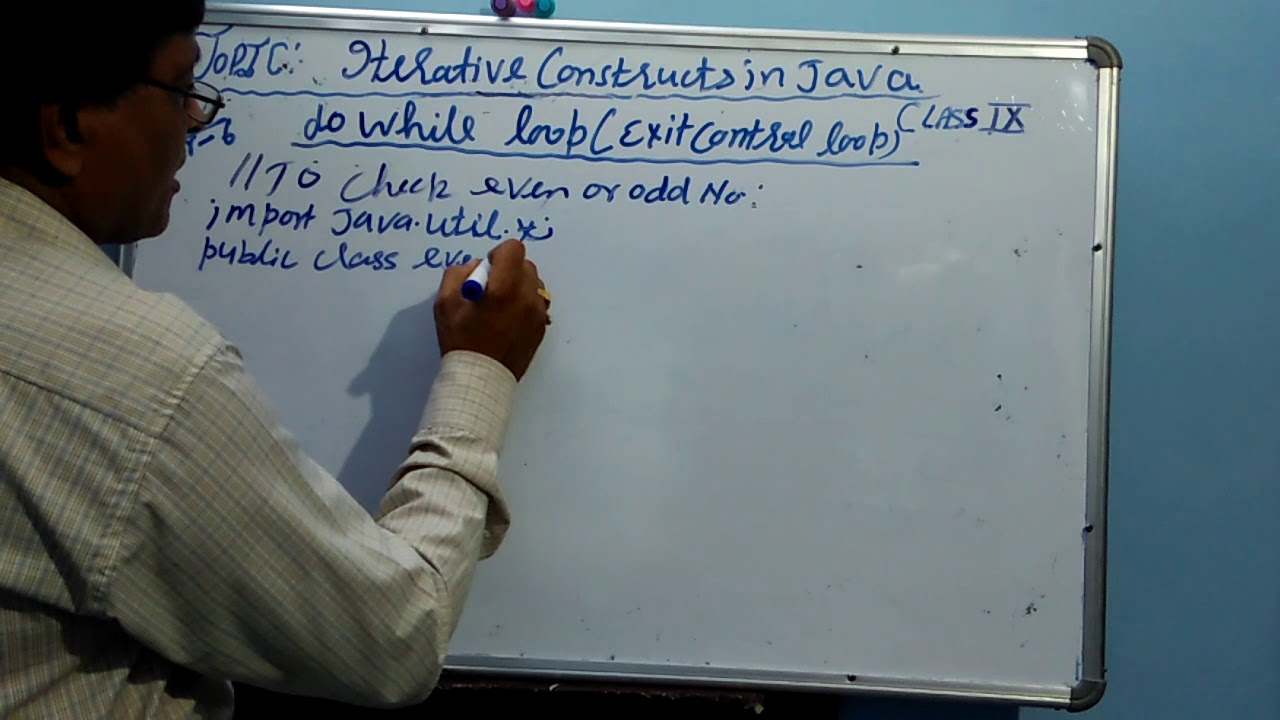 TOPIC: Iterative Constructs in Java
do while loop (Exit Control loop) CLASS IX
//To check even or odd No:
import java.util.*;
public class eve